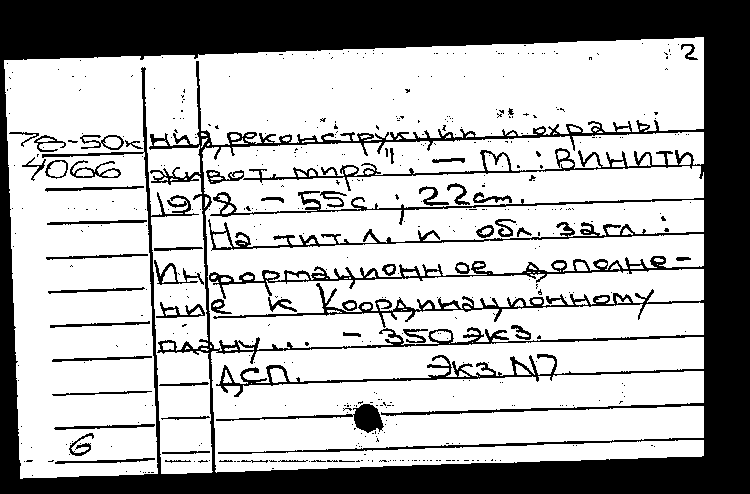 2
78-50к ния, реконструкции и охраны
4066 живот. мира". — М. : ВИНИТИ,
1978. - 55с. ; 22см.
На тит. л. и обл. загл. :
Информационное дополне-
ние к Координационному
плану... - 350 экз.
ДСП. Экз. N7
6